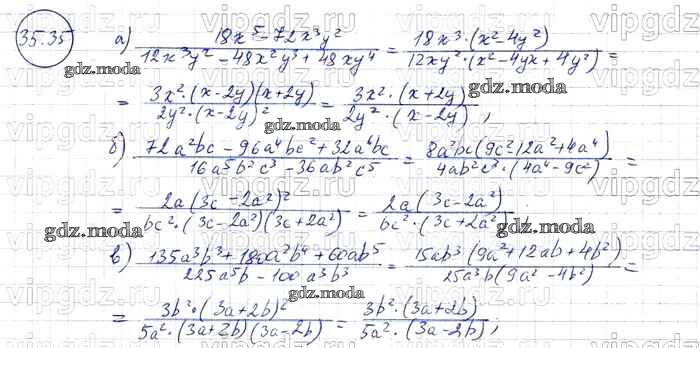 35.35 а) \frac{18x^5 - 72x^3y^2}{12x^3y^2 - 48x^2y^3 + 48xy^4} = \frac{18x^3 \cdot (x^2 - 4y^2)}{12xy^2 \cdot (x^2 - 4yx + 4y^2)} =
= \frac{3x^2 \cdot (x - 2y)(x + 2y)}{2y^2 \cdot (x - 2y)^2} = \frac{3x^2 \cdot (x + 2y)}{2y^2 \cdot (x - 2y)};
б) \frac{72a^2bc - 96a^4bc^2 + 32a^6bc}{16a^5b^2c^3 - 36ab^2c^5} = \frac{8a^2bc(9c^2 12a^2 + 4a^4)}{4ab^2c^3 \cdot (4a^4 - 9c^2)} =
= \frac{2a(3c - 2a^2)^2}{bc^2 \cdot (3c - 2a^2)(3c + 2a^2)} = \frac{2a(3c - 2a^2)}{bc^2 \cdot (3c + 2a^2)}
в) \frac{135a^3b^3 + 180a^2b^4 + 60ab^5}{225a^5b - 100a^3b^3} = \frac{15ab^3(9a^2 + 12ab + 4b^2)}{25a^3b(9a^2 - 4b^2)} =
= \frac{3b^2 \cdot (3a + 2b)^2}{5a^2 \cdot (3a + 2b)(3a - 2b)} = \frac{3b^2 \cdot (3a + 2b)}{5a^2 \cdot (3a - 2b)};
gdz.moda
gdz.moda
gdz.moda
gdz.moda
gdz.moda
gdz.moda
gdz.moda
gdz.moda